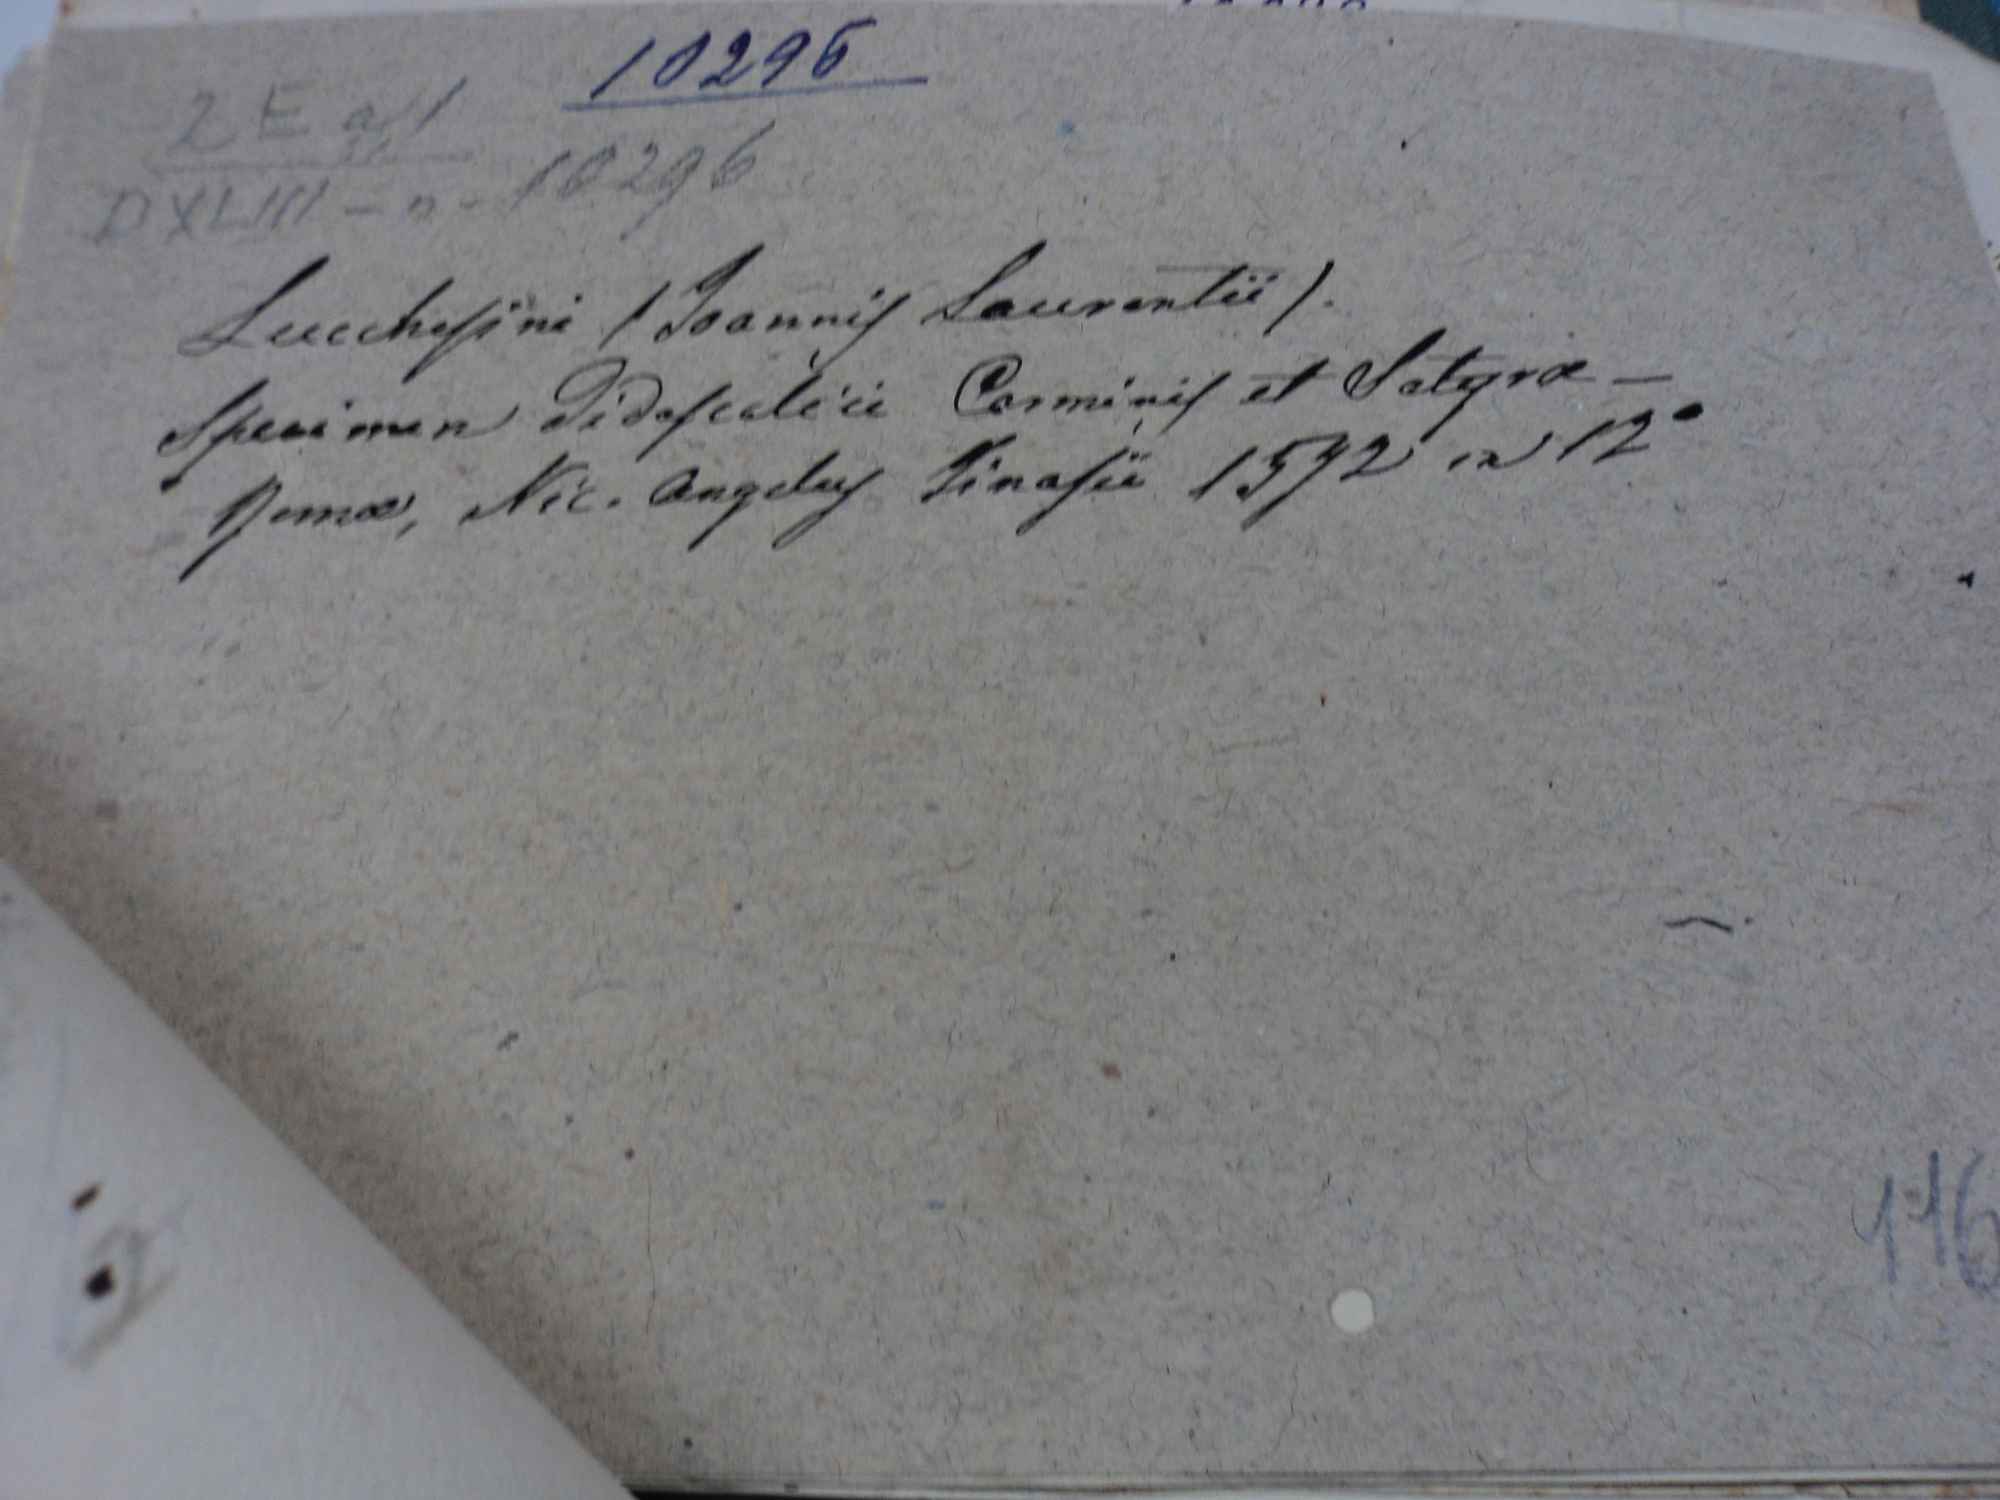 10296
2 E a 1
DXLIII - n - 10296
Lucchesini (Joannis Laurentii).
Specimen Didascalici Carminis et Satyræ —
Romæ, Nic. Angelus Tinassii 1672 in 12°
116